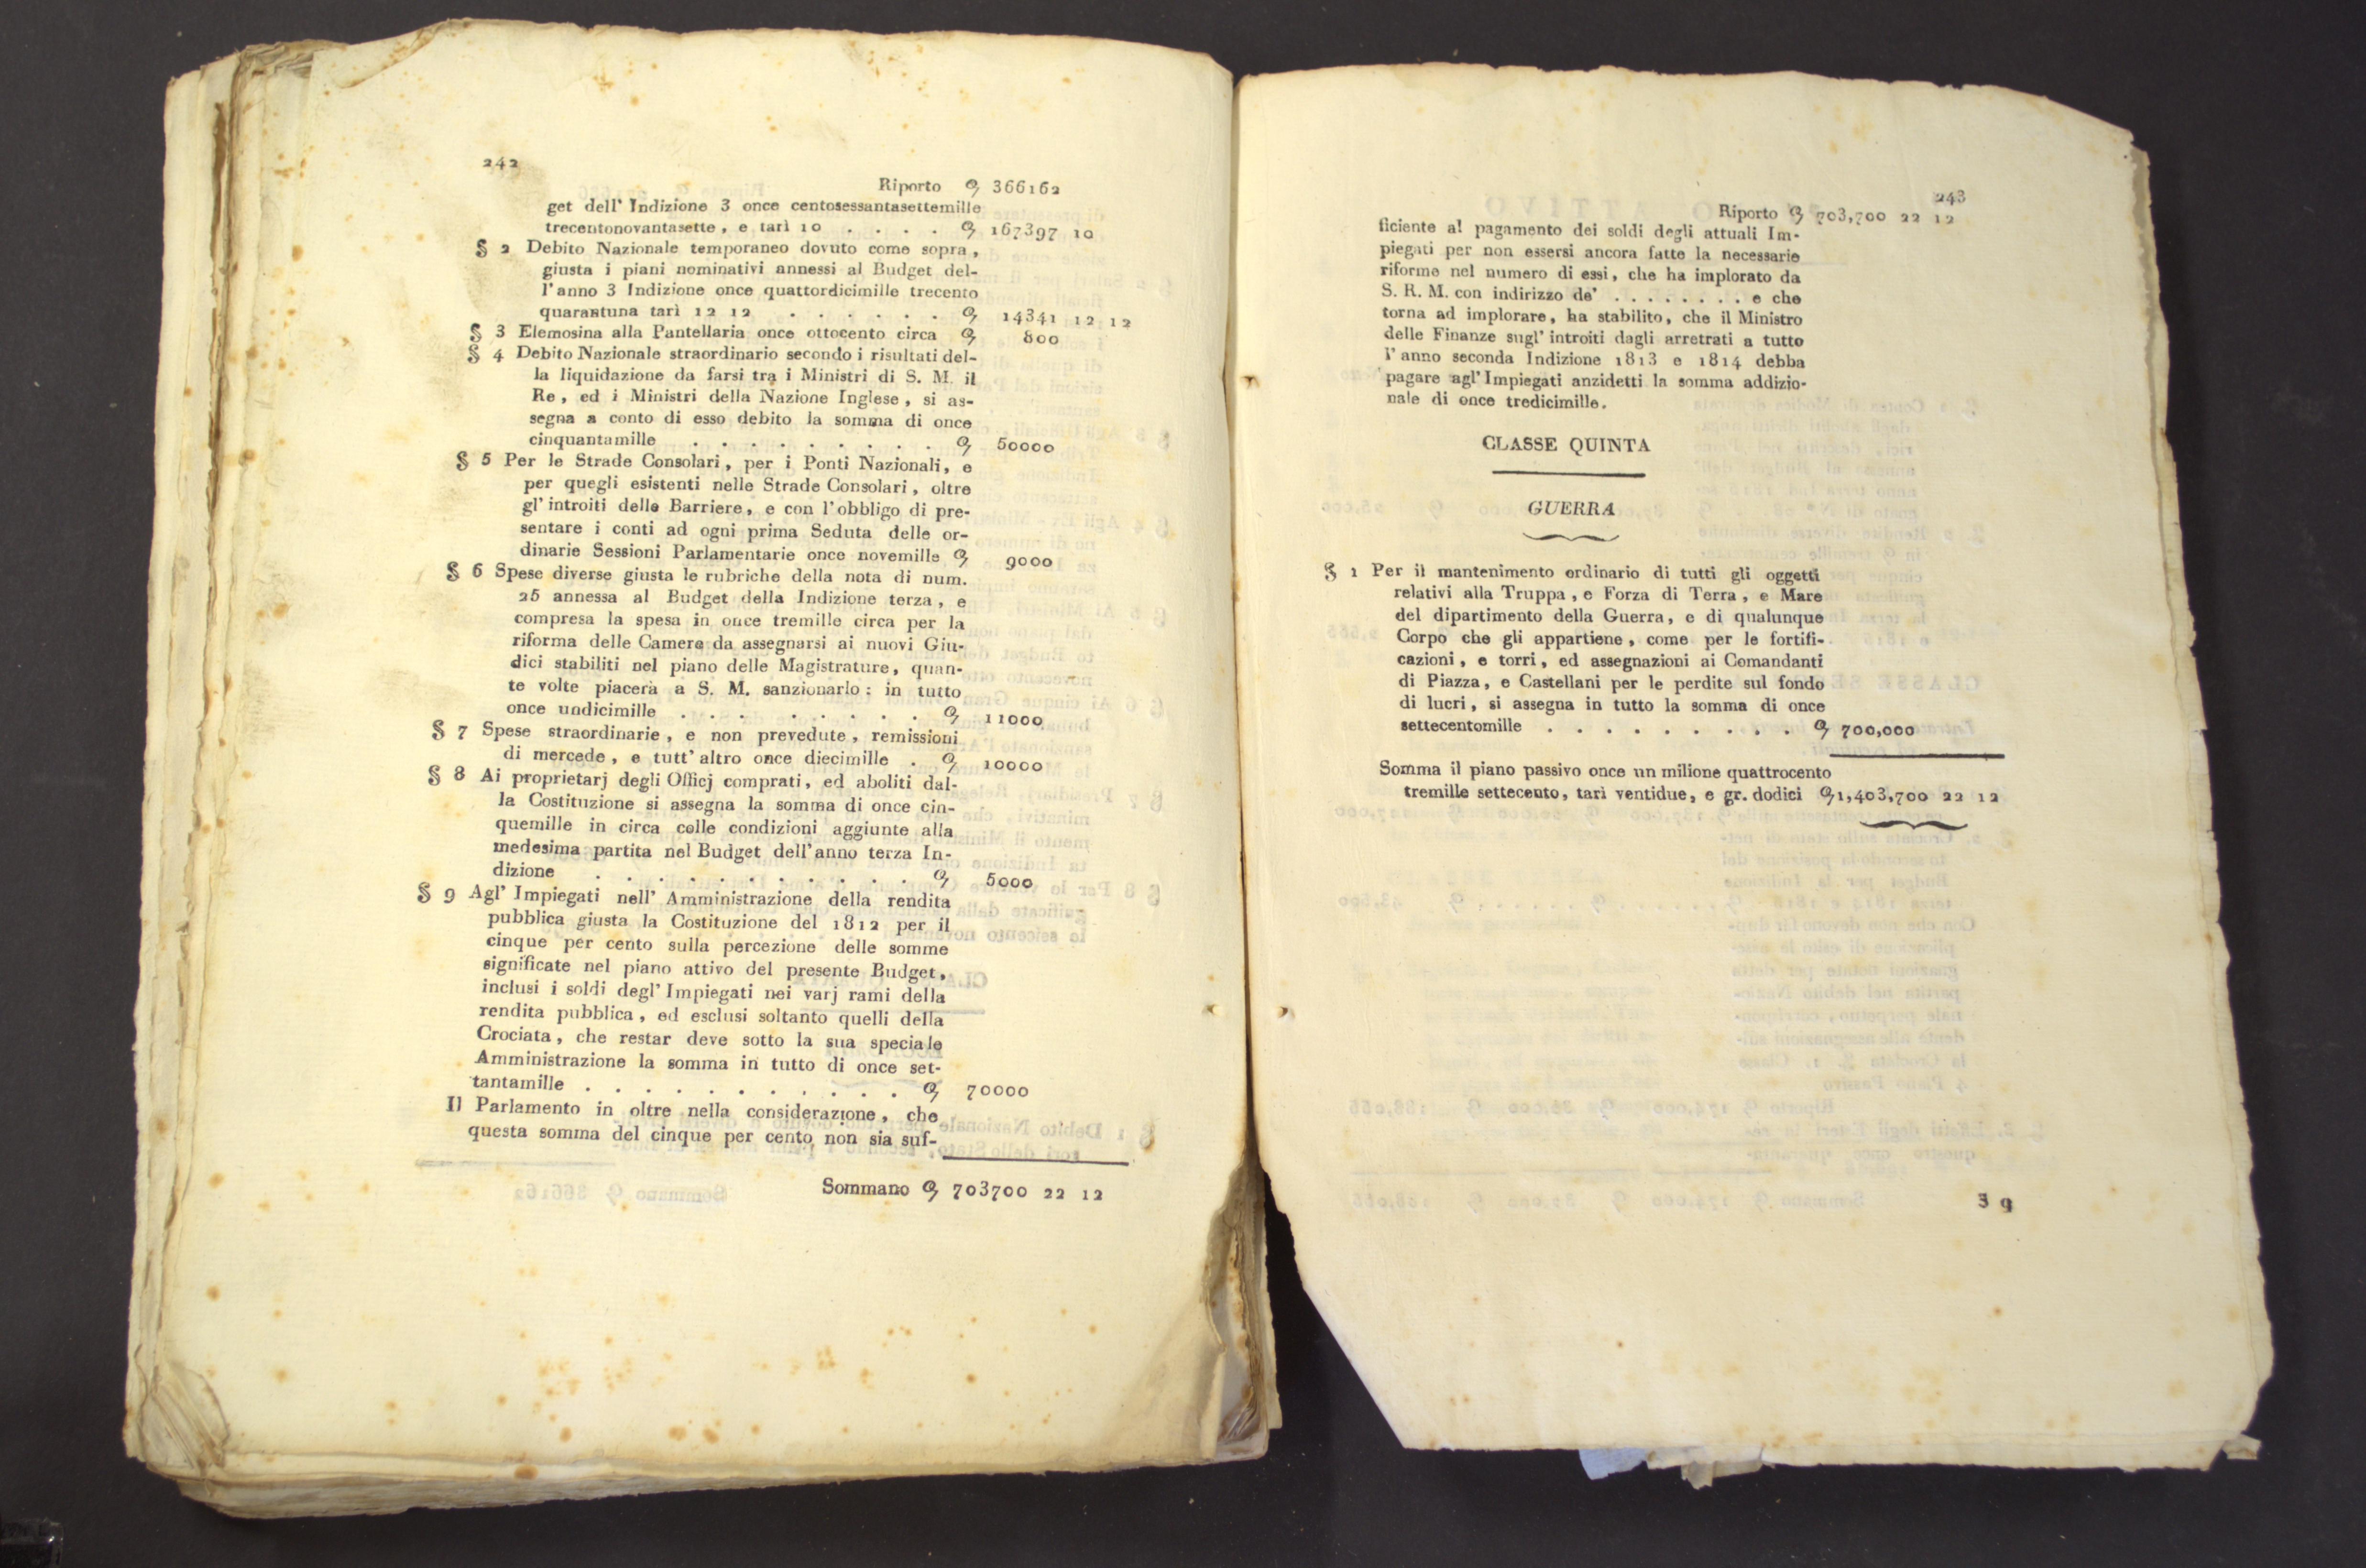 242
Riporto 366162
get dell' Indizione 3 once centosessantasettemille
trecentonovantasette, e tarì 10 . . . . 167397 10
§ 2 Debito Nazionale temporaneo dovuto come sopra,
giusta i piani nominativi annessi al Budget del-
l'anno 3 Indizione once quattordicimille trecento
quarantuna tarì 12 12 . . . . . . 14341 12 12
§ 3 Elemosina alla Pantellaria once ottocento circa 800
§ 4 Debito Nazionale straordinario secondo i risultati del-
la liquidazione da farsi tra i Ministri di S. M. il
Re, ed i Ministri della Nazione Inglese, si as-
segna a conto di esso debito la somma di once
cinquantamille . . . . . . . . . 50000
§ 5 Per le Strade Consolari, per i Ponti Nazionali, e
per quegli esistenti nelle Strade Consolari, oltre
gl' introiti delle Barriere, e con l'obbligo di pre-
sentare i conti ad ogni prima Seduta delle or-
dinarie Sessioni Parlamentarie once novemille 9000
§ 6 Spese diverse giusta le rubriche della nota di num.
25 annessa al Budget della Indizione terza, e
compresa la spesa in once tremille circa per la
riforma delle Camere da assegnarsi ai nuovi Giu-
dici stabiliti nel piano delle Magistrature, quan-
te volte piacerà a S. M. sanzionarlo: in tutto
once undicimille . . . . . . . . 11000
§ 7 Spese straordinarie, e non prevedute, remissioni
di mercede, e tutt' altro once diecimille . 10000
§ 8 Ai proprietarj degli Officj comprati, ed aboliti dal-
la Costituzione si assegna la somma di once cin-
quemille in circa colle condizioni aggiunte alla
medesima partita nel Budget dell'anno terza In-
dizione . . . . . . . . . . . 5000
§ 9 Agl' Impiegati nell' Amministrazione della rendita
pubblica giusta la Costituzione del 1812 per il
cinque per cento sulla percezione delle somme
significate nel piano attivo del presente Budget,
inclusi i soldi degl' Impiegati nei varj rami della
rendita pubblica, ed esclusi soltanto quelli della
Crociata, che restar deve sotto la sua speciale
Amministrazione la somma in tutto di once set-
tantamille . . . . . . . . . . . 70000
Il Parlamento in oltre nella considerazione, che
questa somma del cinque per cento non sia suf-
Sommano 703700 22 12
243
Riporto 703,700 22 12
ficiente al pagamento dei soldi degli attuali Im-
piegati per non essersi ancora fatte la necessarie
riforme nel numero di essi, che ha implorato da
S. R. M. con indirizzo de' . . . . . . . . e che
torna ad implorare, ha stabilito, che il Ministro
delle Finanze sugl' introiti dagli arretrati a tutto
l'anno seconda Indizione 1813 e 1814 debba
pagare agl' Impiegati anzidetti la somma addizio-
nale di once tredicimille.
CLASSE QUINTA
GUERRA
§ 1 Per il mantenimento ordinario di tutti gli oggetti
relativi alla Truppa, e Forza di Terra, e Mare
del dipartimento della Guerra, e di qualunque
Corpo che gli appartiene, come per le fortifi-
cazioni, e torri, ed assegnazioni ai Comandanti
di Piazza, e Castellani per le perdite sul fondo
di lucri, si assegna in tutto la somma di once
settecentomille . . . . . . . . . 700,000
Somma il piano passivo once un milione quattrocento
tremille settecento, tarì ventidue, e gr. dodici 1,403,700 22 12
3 q